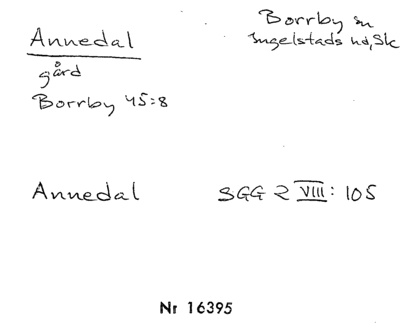 Annedal
gård
Borrby 45:8
Borrby sn
Ingelstads hd, Sk
Annedal SGG 2 VIII: 105
Nr 16395